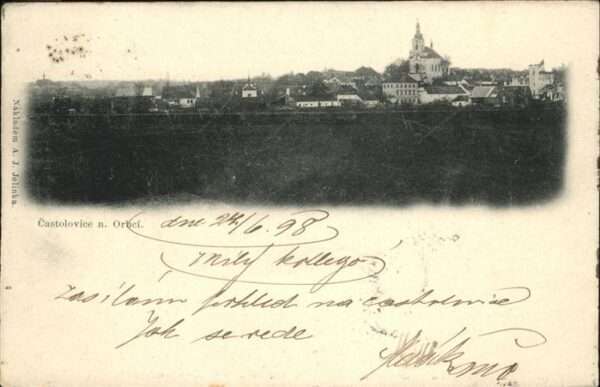 Nákladem A. J. Jelínka.
Častolovice n. Orlicí.
dne 24/6. 98
Milý kollego
Zasílám pohled na častolovice
Jak se vede